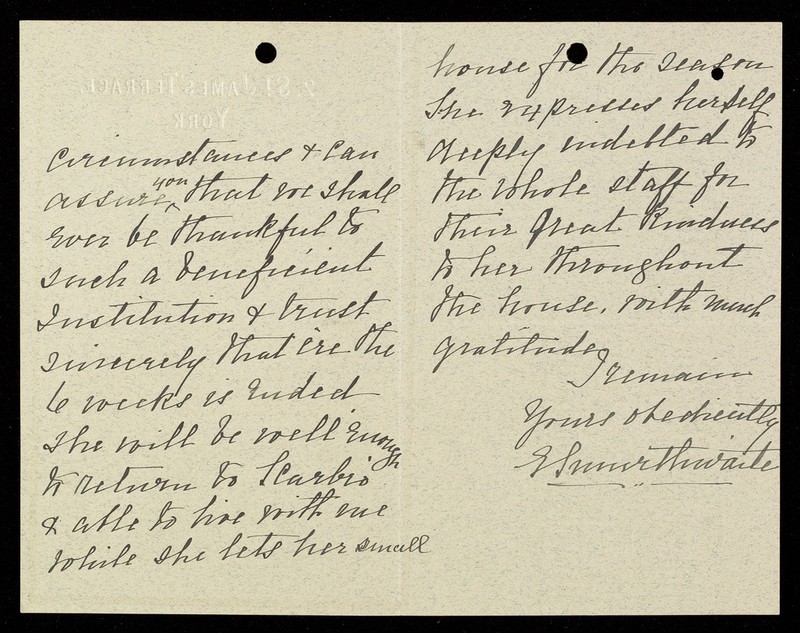 2. St. James Terrace,
York.
circumstances & can
assure you that we shall
ever be thankful to
such a beneficient
Institution & trust
sincerely that ere the
6 weeks is ended
she will be well enough
to return to Scarbro'
& able to live with me
while she lets her small
house for the season
She expresses herself
deeply indebted to
the whole staff for
their great kindness
to her throughout
the house. With much
gratitude
I remain
Yours obediently
E Smurthwaite